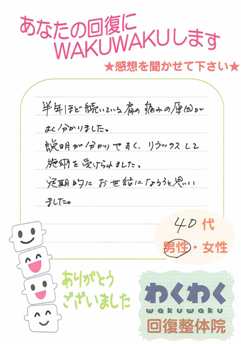 あなたの回復に
WAKUWAKUします
★感想を聞かせて下さい★
半年ほど続いている肩の痛みの原因が
よく分かりました。
説明が分かりやすく、リラックスして
施術を受けられました。
定期的にお世話になろうと思い
ました。
40代
男性・女性
ありがとう
ございました
わくわく
wakuwaku
回復整体院